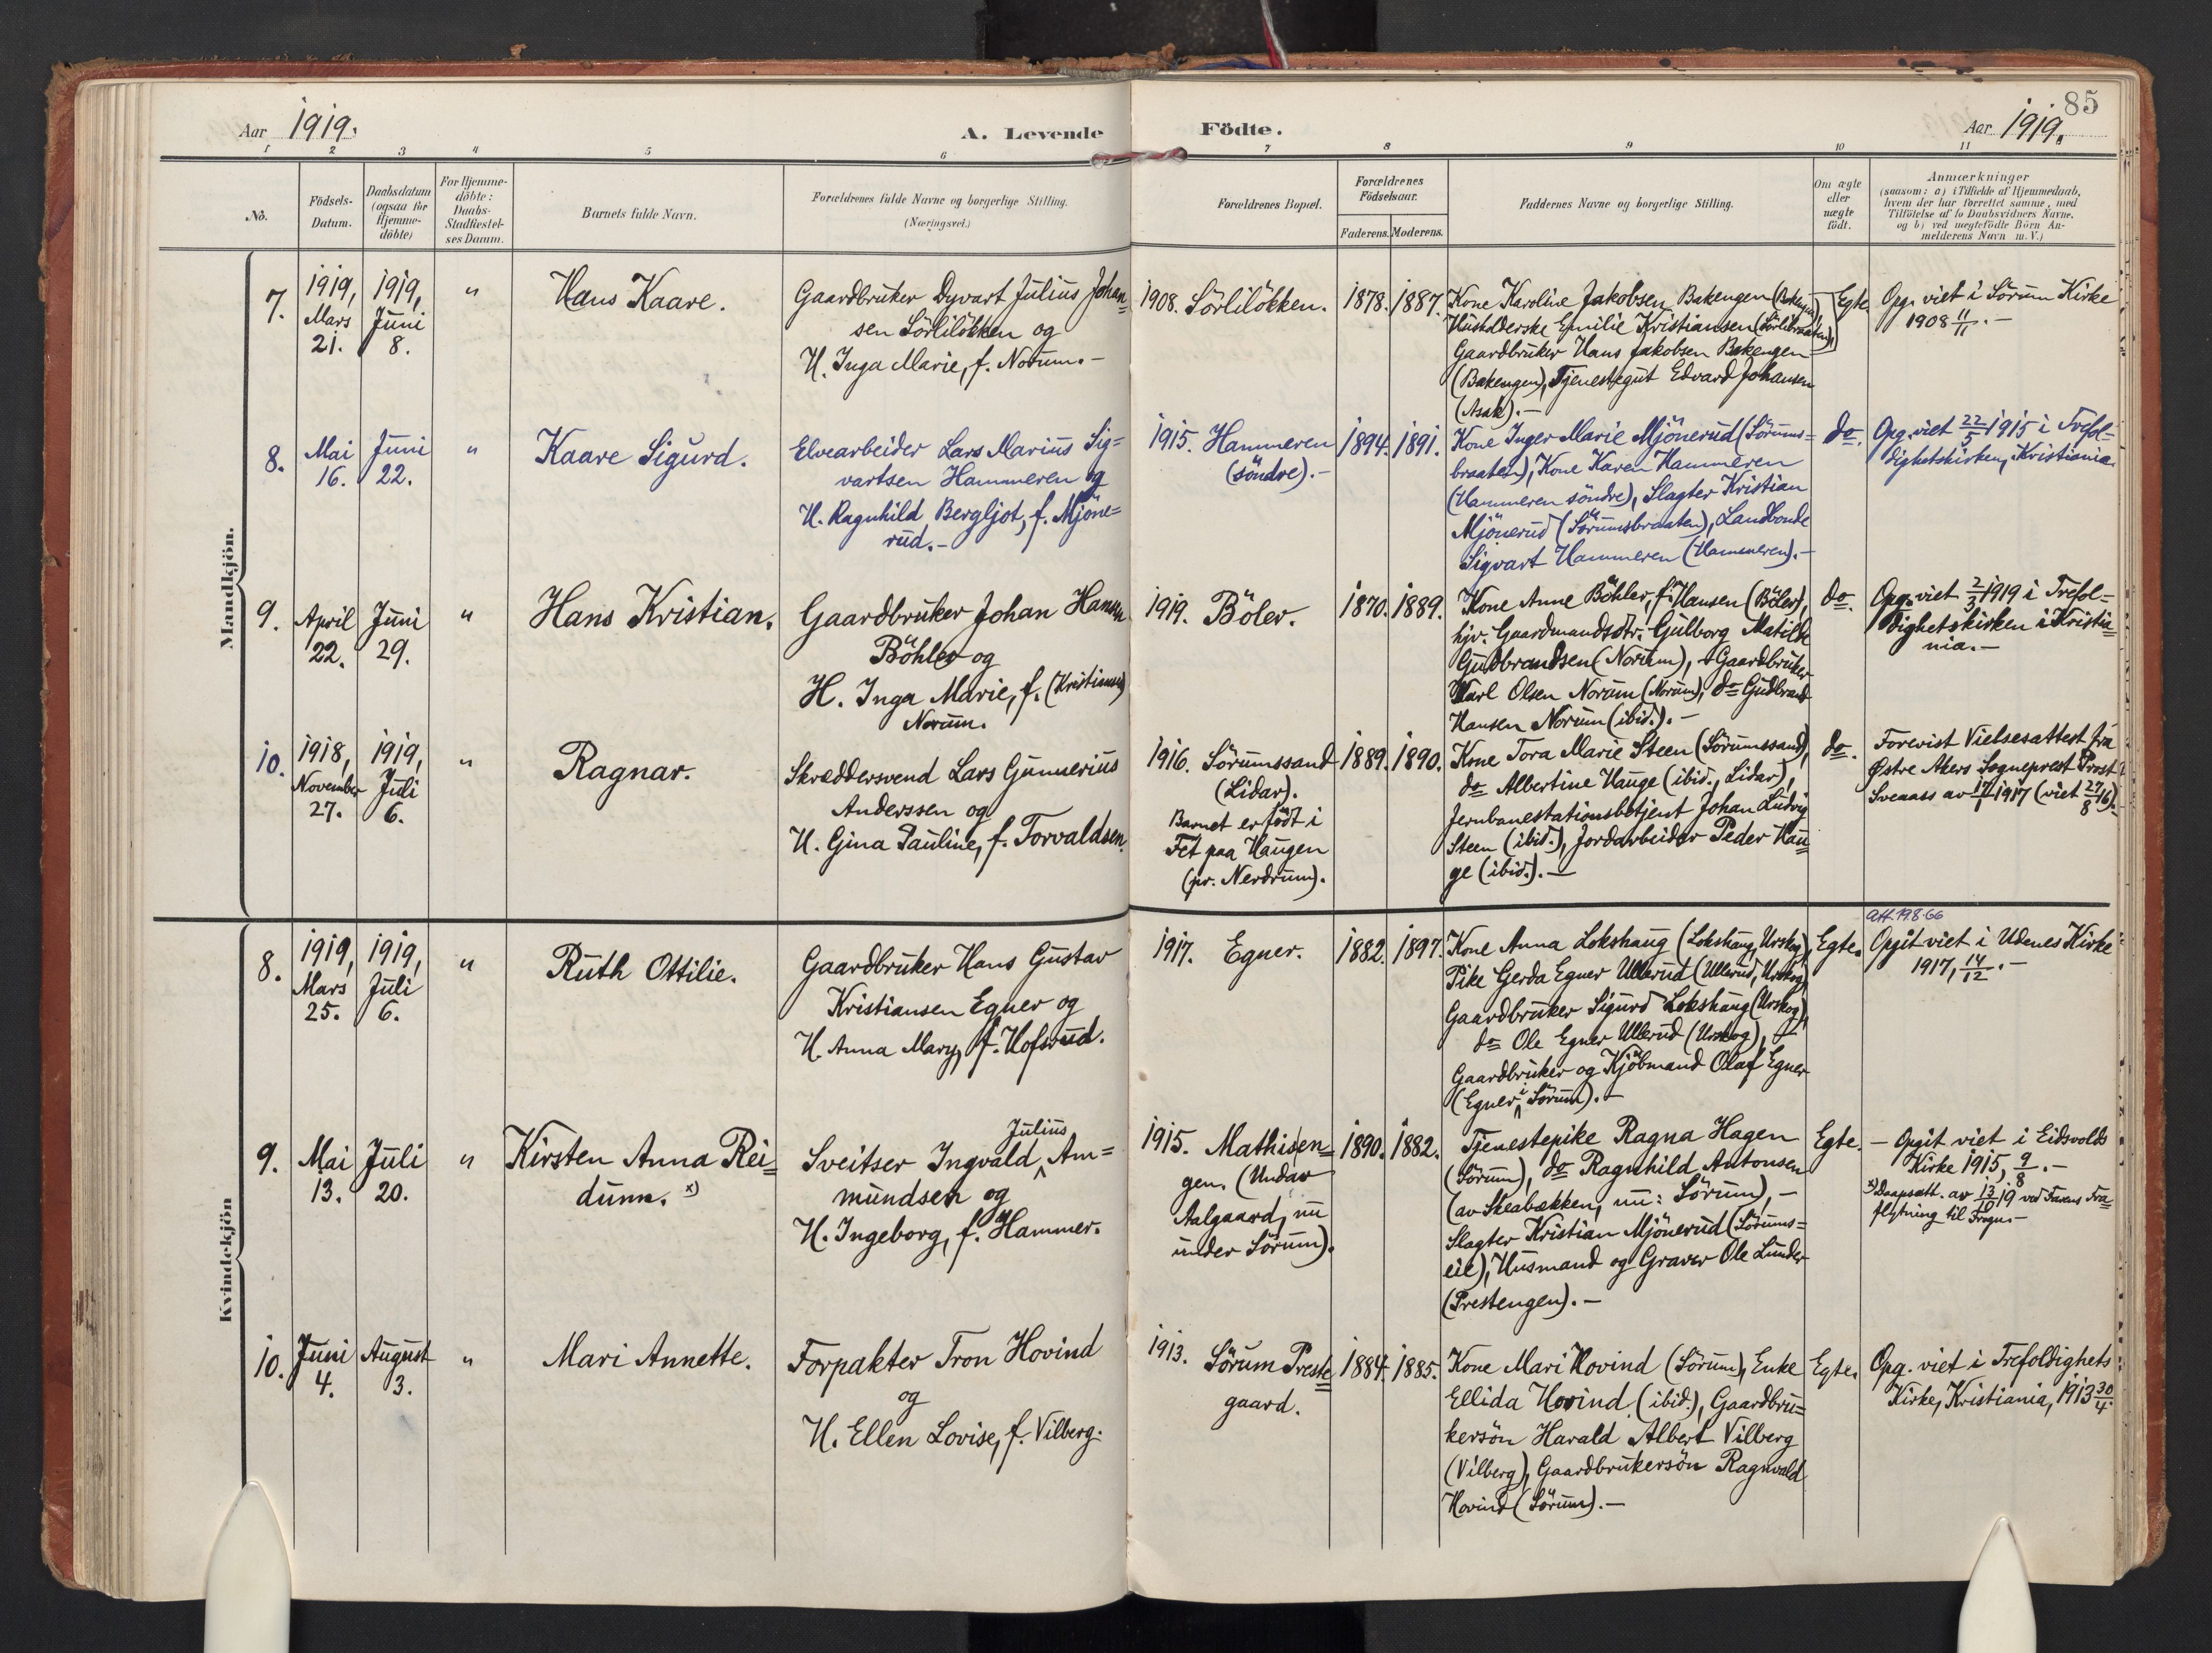 85
Aar 1919.
A. Levende Födte.
Aar 1919.
1 2 3 4 5 6 7 8 9 10 11
No.
Födsels-
Datum.
Daabsdatum
(ogsaa for
Hjemme-
döbte)
For Hjemme-
döbte:
Daabs-
Stadfæstel-
ses Datum.
Barnets fulde Navn.
Forældrenes fulde Navne og borgerlige Stilling.
(Næringsvei.)
Forældrenes Bopæl.
Forældrenes
Födselsaar.
Faderens. Moderens.
Faddernes Navne og borgerlige Stilling.
Om ægte
eller
uægte
födt.
Anmærkninger
(saasom: a) i Tilfælde af Hjemmedaab,
hvem der har forrettet samme, med
Tilföielse af to Daabsvidners Navne,
og b) ved uægtefödte Börn An-
melderens Navn m. V.)
Mandkjön.
7.
1919,
Mars
21.
1919,
Juni
8.
"
Hans Kaare.
Gaardbruker Dyvart Julius Johan=
sen Sörliløkken og
H. Inga Marie, f. Norum.-
1908. Sörliløkken.
1878. 1887.
Kone Karoline Jakobsen Bakengen (Bakengen),
Husholderske Emilie Kristiansen (Sörlibraaten),
Gaardbruker Hans Jakobsen Bakengen
(Bakengen), Tjenestegut Edvard Johansen
(Asak).-
Egte.
Opg. viet i Sörum Kirke
1908 11/11.-
8.
Mai
16.
Juni
22.
"
Kaare Sigurd.
Elvearbeider Lars Marius Sig=
vartsen Hammeren og
H. Ragnhild Bergljot, f. Mjöne=
rud.-
1915. Hammeren
(söndre).-
1894. 1891.
Kone Inger Marie Mjönerud (Sörums=
braaten), Kone Karen Hammeren
(Hammeren söndre), Slagter Kristian
Mjönerud (Sörumsbraaten), Landbonde
Sigvart Hammeren (Hammeren).-
do.
Opg. viet 22/5 1915 i Trefol=
dighetskirken, Kristiania.
9.
April
22.
Juni
29.
"
Hans Kristian.
Gaardbruker Johan Hansen
Böhler og
H. Inga Marie, f. (Kristiansen)
Norum.
1919. Böler.
1870. 1889.
Kone Anne Böhler, f. Hansen (Böler),
hjv. Gaardmandsdtr. Gulborg Matilde
Gudbrandsen (Norum), Gaardbruker
Karl Olsen Norum (Norum), do Gudbrand
Hansen Norum (ibid.).-
do.
Opg. viet 2/3 1919 i Trefol=
dighetskirken i Kristia=
nia.-
10.
1918,
November
27.
1919,
Juli
6.
"
Ragnar.
Skræddersvend Lars Gunnerius
Anderssen og
H. Gina Pauline, f. Torvaldsen.
1916. Sörumssand
(Lidar).
Barnet er födt i
Fet paa Haugen
(pr. Nerdrum).
1889. 1890.
Kone Tora Marie Steen (Sörumssand),
do Albertine Hauge (ibid., Lidar),
Jernbanestationsbetjent Johan Ludvig
Steen (ibid.), Jordarbeider Peder Hau=
ge (ibid.).-
do.
Forevist Vielsesattest fra
Østre Akers Sogneprest Prost
Sveaass av 17/1 1917 (viet 27/8 16).
Kvindekjön
8.
1919,
Mars
25.
1919,
Juli
6.
"
Ruth Ottilie.
Gaardbruker Hans Gustav
Kristiansen Egner og
H. Anna Mary, f. Hofsrud.
1917. Egner.
1882. 1897.
Kone Anna Lokshaug (Lokshaug, Urskog),
Pike Gerda Egner Ullerud (Ullerud, Urskog),
Gaardbruker Sigurd Lokshaug (Urskog),
do Ole Egner Ullerud (Urskog),
Gaardbruker og Kjöbmand Olaf Egner
(Egner i Sörum).-
Egte.
att. 19.8.66
Opgit viet i Udenes Kirke
1917, 14/12.-
9.
Mai
13.
Juli
20.
"
Kirsten Anna Rei=
dunn. x)
Sveitser Ingvald Julius Am=
mundsen og
H. Ingeborg, f. Hammer.
1915. Mathisen=
gen. (Under
Aalgaard, nu
under Sörum).
1890. 1882.
Tjenestepike Ragna Hagen
(Sörum), do Ragnhild Antonsen
(av Skeabækken, nu: Sörum),-
Slagter Kristian Mjönerud (Sörums=
eie), Husmand og Graver Ole Lunder
(Prestengen).-
Egte.
- Opgit viet i Eidsvolds
Kirke 1915, 9/8.-
x) Daapsatt. av 13/10 19 ved Farens Fra=
flytning til Frogn.-
10.
Juni
4.
August
3.
"
Mari Annette.
Forpakter Tron Hovind
og
H. Ellen Lovise, f. Vilberg.
1913. Sörum Preste=
gaard.
1884. 1885.
Kone Mari Hovind (Sörum), Enke
Ellida Hovind (ibid.), Gaardbru=
kersön Harald Albert Vilberg
(Vilberg), Gaardbrukersön Ragnvald
Hovind (Sörum).-
Egte.
Opg. viet i Trefoldighets
Kirke, Kristiania, 1913 30/4.